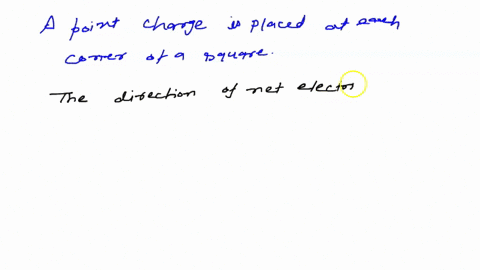 A point charge is placed at each
corner of a square.
The direction of net electro